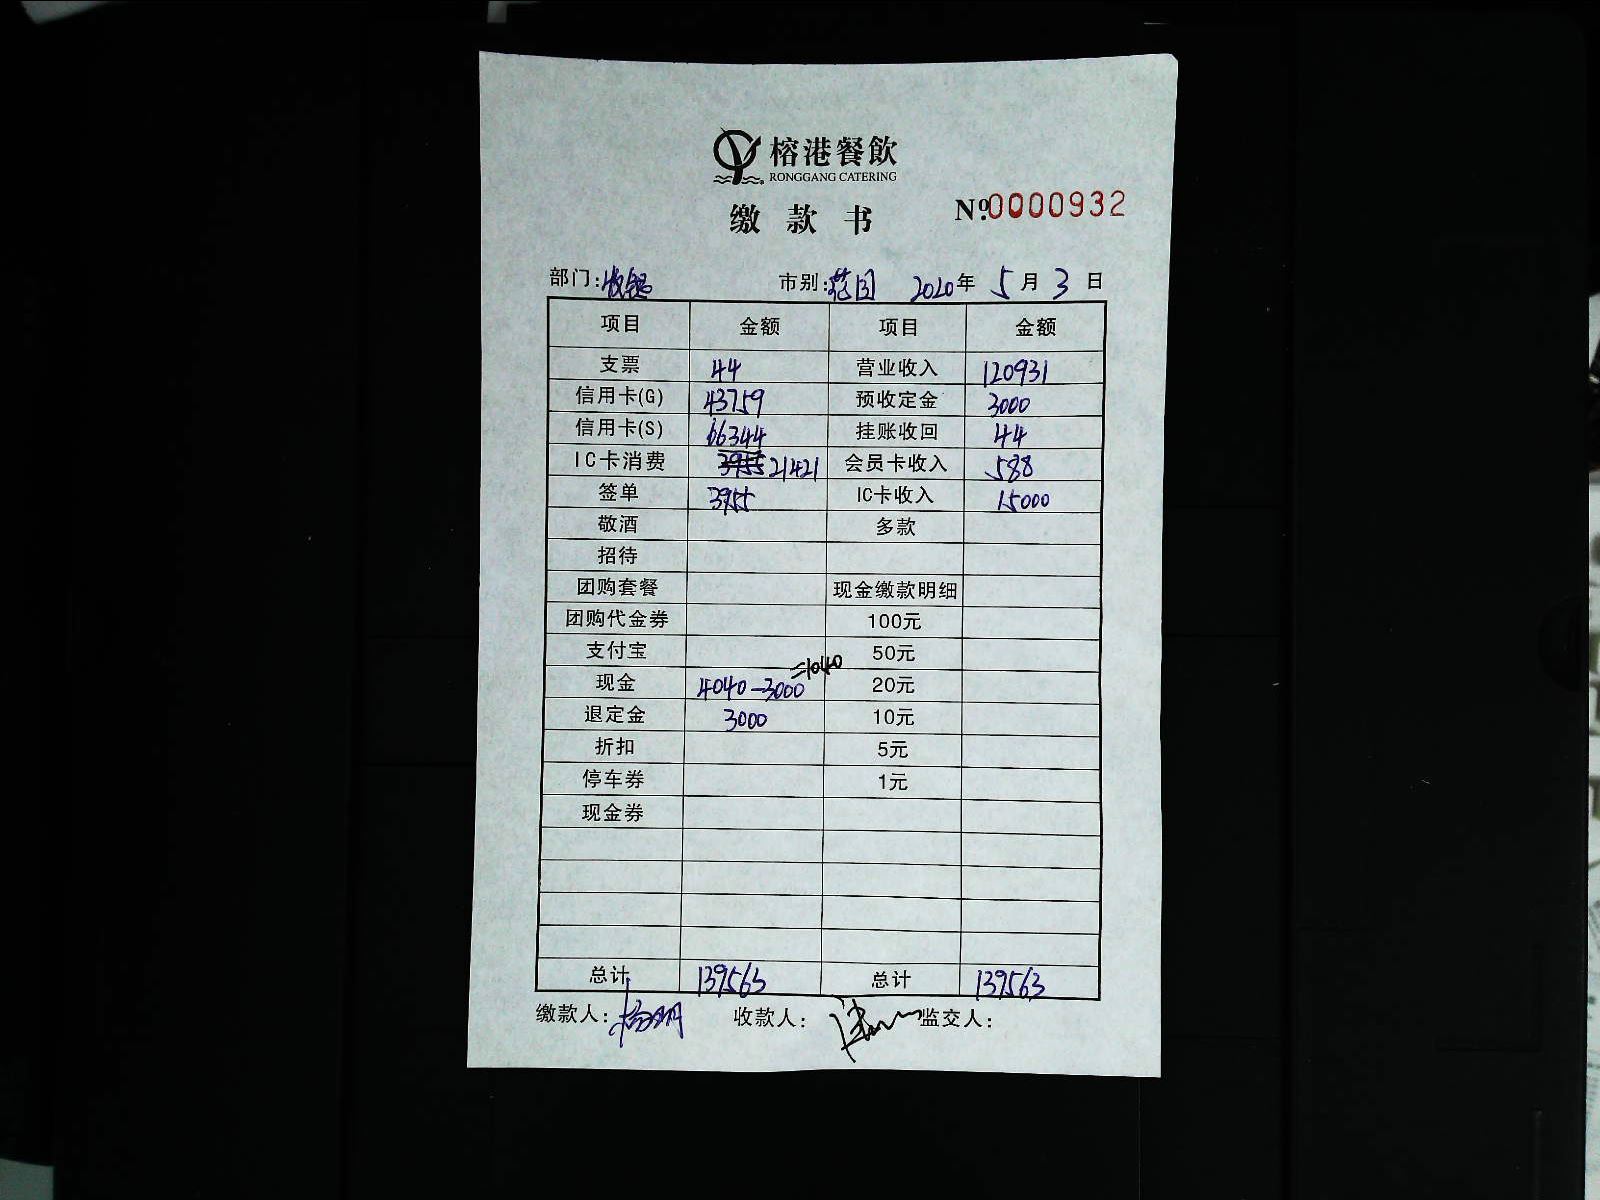 榕港餐飲
RONGGANG CATERING
缴款书 Nº.0000932
部门:收银 市别:范围 2020年5月3日
项目 金额 项目 金额
支票 44 营业收入 120931
信用卡(G) 43759 预收定金 3000
信用卡(S) 66344 挂账收回 44
IC卡消费 3955 21421 会员卡收入 588
签单 3955 IC卡收入 15000
敬酒 多款
招待
团购套餐 现金缴款明细
团购代金券 100元
支付宝 50元
现金 4040-3000=1040 20元
退定金 3000 10元
折扣 5元
停车券 1元
现金券
总计 139563 总计 139563
缴款人: 收款人: 监交人: